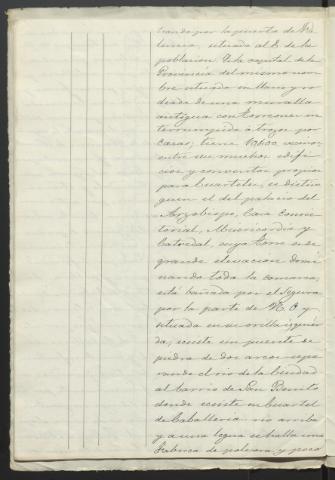 trando por la puerta de Va
lencia, situada al E. de la
poblacion. Es la capital de la
Provincia del mismo nom
bre situada en llano y ro
deada de una muralla
antigua con torreones in
terrumpida a trozos por
casas; tiene vecinos
entre sus muchos edifi
cios y conventos propios
para cuarteles, se distin
guen el del palacio del
Arzobispo, Casa Consis
torial, Misericordia y
Catedral, cuya torre es de
grande elevacion domi
nando toda la comarca,
está bañada por el Segura
por la parte de N. O y
situada en su orilla izquier
da, existe un puente de
piedra de dos arcos sepa
rando el rio de la Ciudad
al barrio de San Benito
donde existe un Cuartel
de Caballeria. rio arriba
y a una legua se halla una
fabrica de polvora y poco